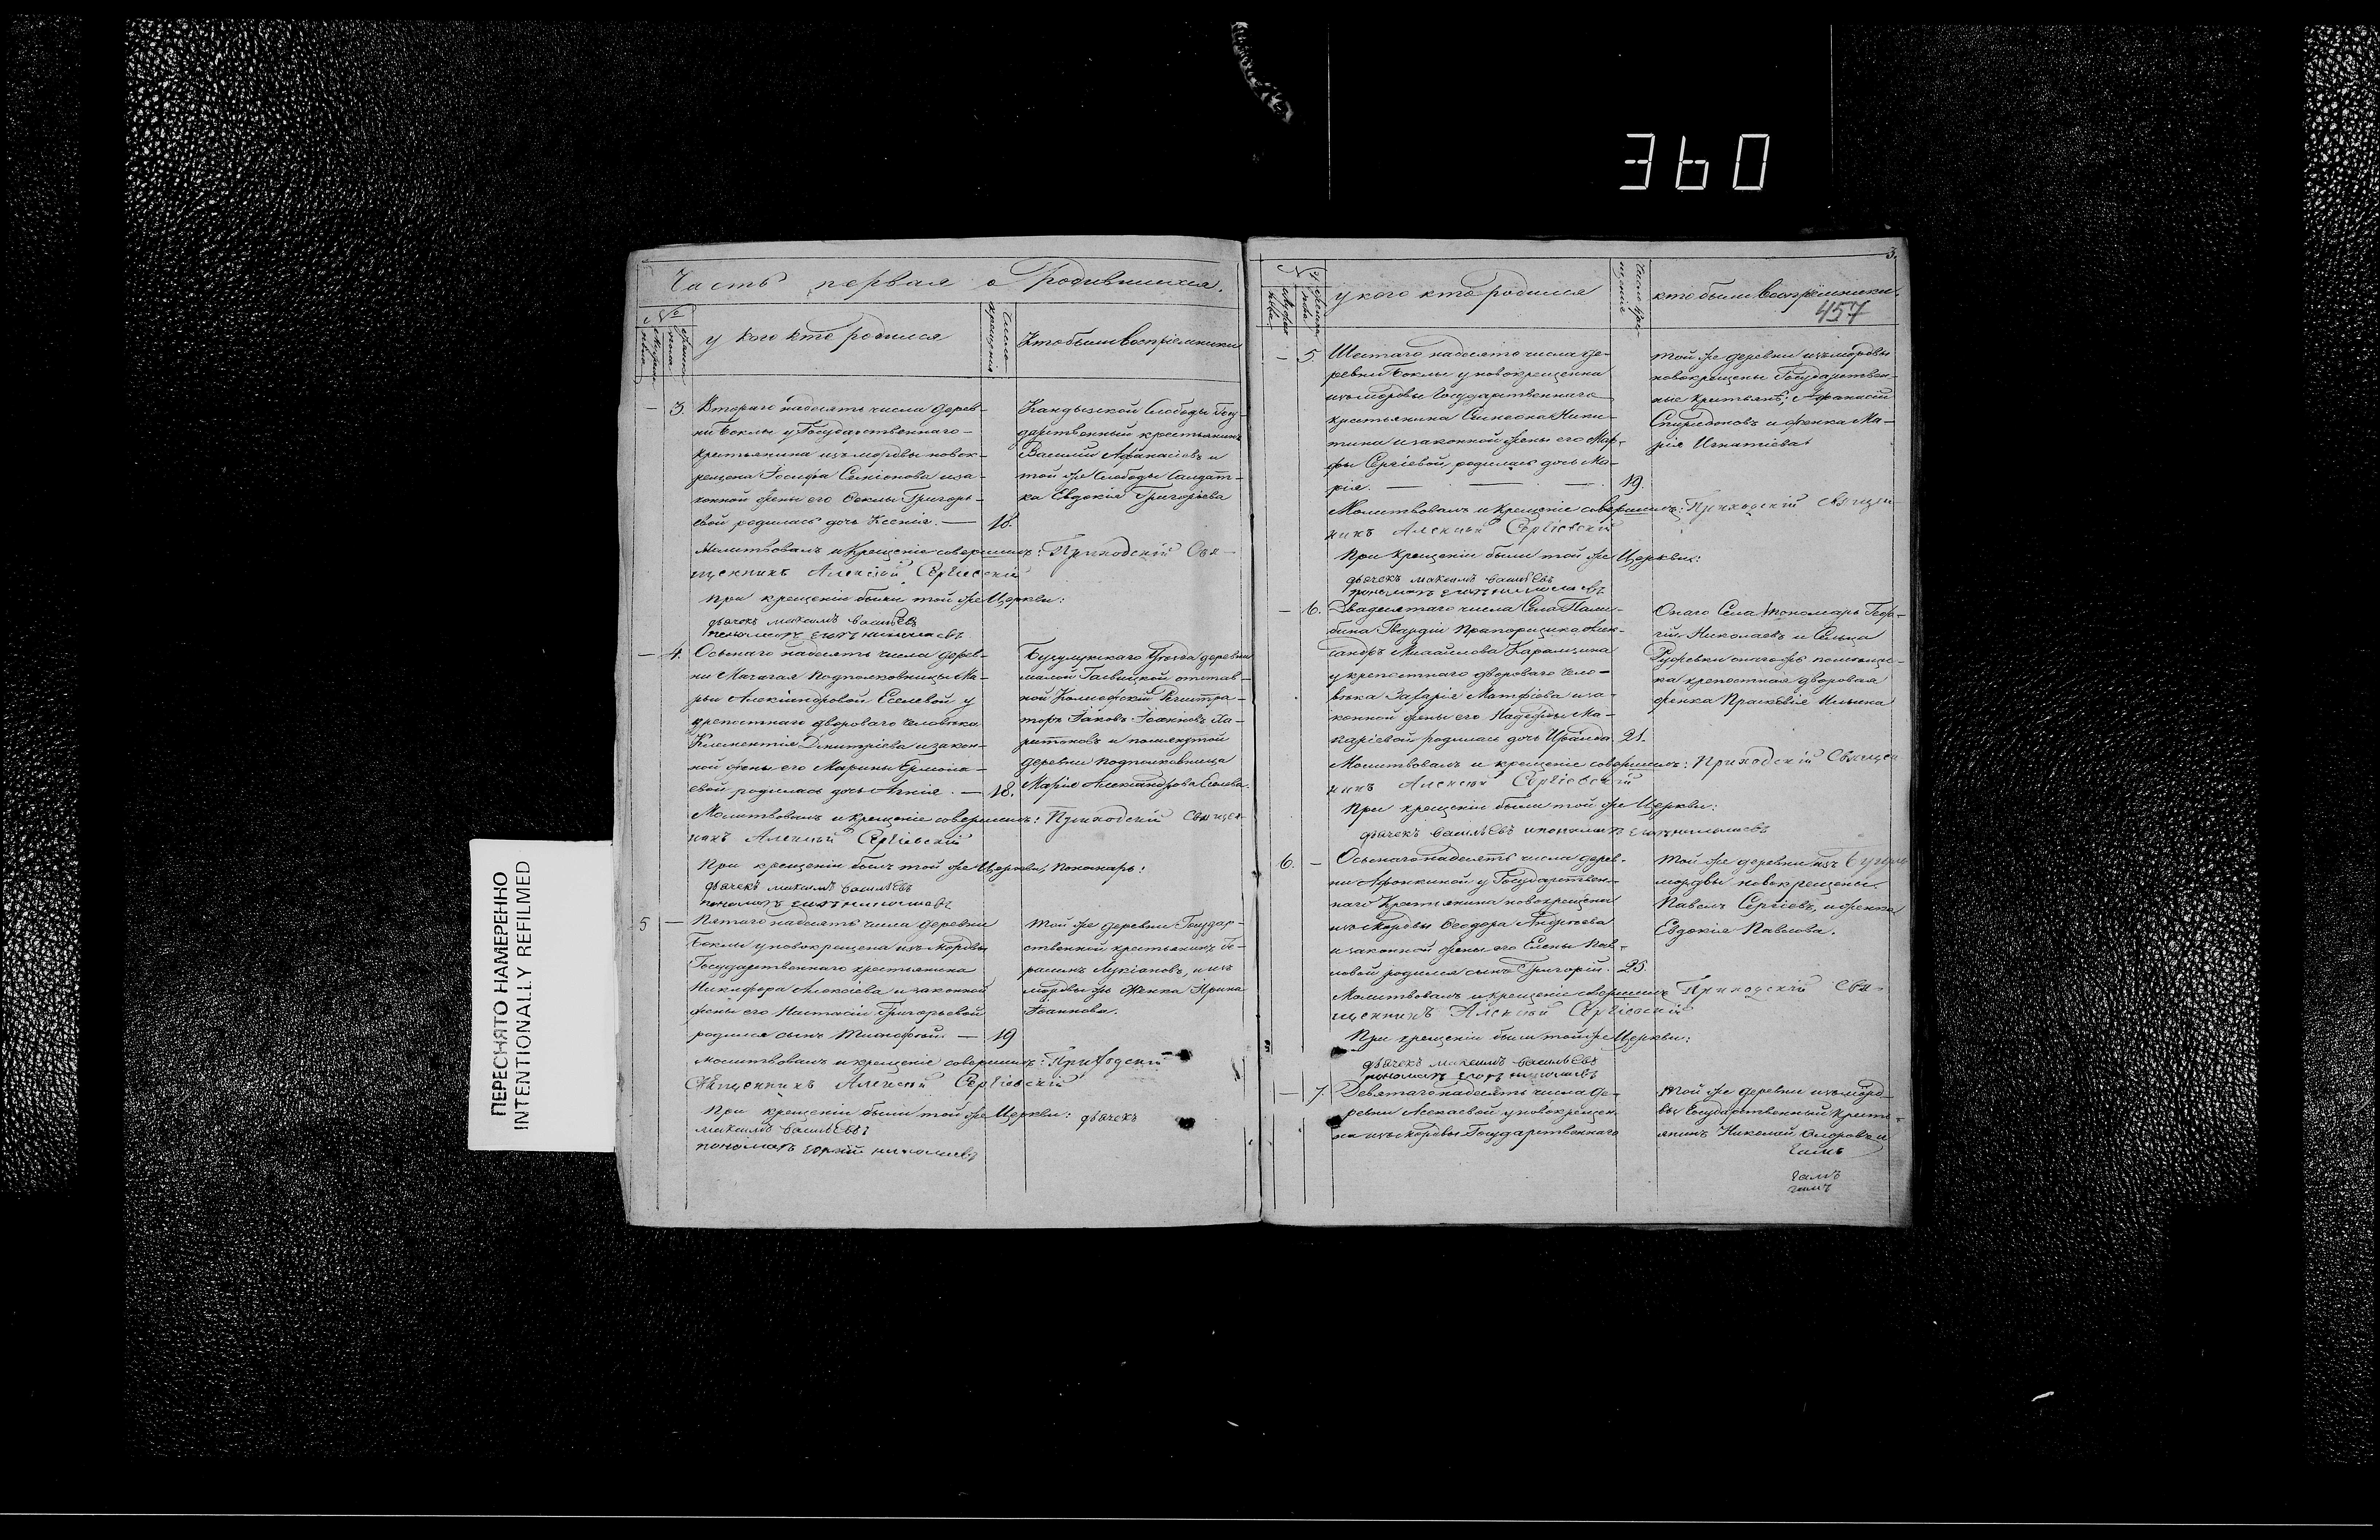 360
ПЕРЕСНЯТО НАМЕРЕННО
INTENTIONALLY REFILMED
Часть первая о Родившихся.
№
мужеска
пола
женска
у кого кто родился
Число
крещения
Кто были восприемники
3. Втораго надесять числа дерев-
ни Боклы у Государственнаго
крестьянина изъ мордвы новок-
рещена Иосифа Семионова и за-
конной жены его Феклы Григорь-
евой родилась дочь Ксения. — 18.
Кандызской Слободы Госу-
дарственный крестьянинъ
Василий Афанасиевъ и
той же Слободы Салдат-
ка Евдокия Григорьева
Молитвовалъ и крещение совершилъ: Приходский Свя-
щенникъ Алексий Сергиевский
При крещении были той же Церкви:
дьячекъ максимъ васильевъ
пономарь егоръ николаевъ
4. Осьмаго надесять числа дерев-
ни Мачагая Подполковницы Ма-
рьи Александровой Еселевой у
крепостнаго двороваго человека
Климентия Димитриева и закон-
ной жены его Марины Ермола-
евой родилась дочь Агния. — 18.
Бугульминскаго Уезда деревни
малой отстав-
ной Коллежский Регистра-
торъ Иаковъ Иоанновъ Ха-
ритоновъ и
деревни подполковница
Мария Александрова Еселева.
Молитвовалъ и крещение совершилъ: Приходский Священ-
никъ Алексий Сергиевский
При крещении былъ той же Церкви, Пономарь:
дьячекъ максимъ васильевъ
пономарь егоръ николаевъ
5 — Пятаго надесять числа деревни
Боклы у новокрещена изъ мордвы
Государственнаго крестьянина
Никифора Алексиева и законной
жены его Настасии Григорьевой
родился сынъ Тимофей. — 19
Той же деревни Государ-
ственной крестьянинъ Ге-
расимъ Лукиановъ, и изъ
мордвы же женка Ирина
Иоаннова.
Молитвовалъ и крещение совершилъ: Приходский
Священникъ Алексий Сергиевский
При крещении были той же Церкви: дьячекъ
максимъ васильевъ
пономарь егорий николаевъ
3.
у кого кто родился
Число кре-
щения
кто были восприемники.
457
— 5. Шестаго надесять числа де-
ревни Боклы у новокрещенна
изъ мордвы Государственнаго
крестьянина Симеона Ники-
тина и законной жены его Мар-
фы Сергиевой родилась дочь Ма-
рия. — 19.
той же деревни изъ мордвы
новокрещены Государствен-
ные крестьяне; Афанасий
Спиридоновъ и женка Ма-
рия Игнатиева
Молитвовалъ и крещение совершилъ: Приходский Священ-
никъ Алексий Сергиевский
При крещении были той же Церкви:
дьячекъ максимъ васильевъ
пономарь егоръ николаевъ
— 6. Двадесятаго числа Села
Гвардии Прапорщика Алек-
сандръ Михайлова Карамзина
у крепостнаго двороваго чело-
века Захария Матфиева и за-
конной жены его Надежды Ма-
кариевой родилась дочь Ираида. 21.
Онаго Села пономарь Геор-
гий Николаевъ и Сельца
онаго же помещи-
ка крепостная дворовая
женка Прасковия Ильина
Молитвовалъ и крещение совершилъ: Приходский Священ-
никъ Алексий Сергиевский
При крещении были той же Церкви:
дьячекъ васильевъ и пономарь егоръ николаевъ
6. — Осьмаго надесять числа дерев-
ни Афонкиной у Государствен-
наго Крестьянина новокрещена
изъ мордвы Феодора Андреева
и законной жены его Елены Пав-
ловой родился сынъ Григорий. 25.
той же деревни изъ
мордвы новокрещены
Павелъ Сергиевъ, и женка
Евдокия Павлова.
Молитвовалъ и крещение совершилъ Приходский Свя-
щенникъ Алексий Сергиевский
При крещении были той же Церкви:
дьячекъ максимъ васильевъ
пономарь егоръ николаевъ
— 7. Девятаго надесять числа де-
ревни Аскаевой у новокрещен-
на изъ мордвы Государственнаго
Той же деревни изъ морд-
вы Государственный кресть-
янинъ Николай Федоровъ и